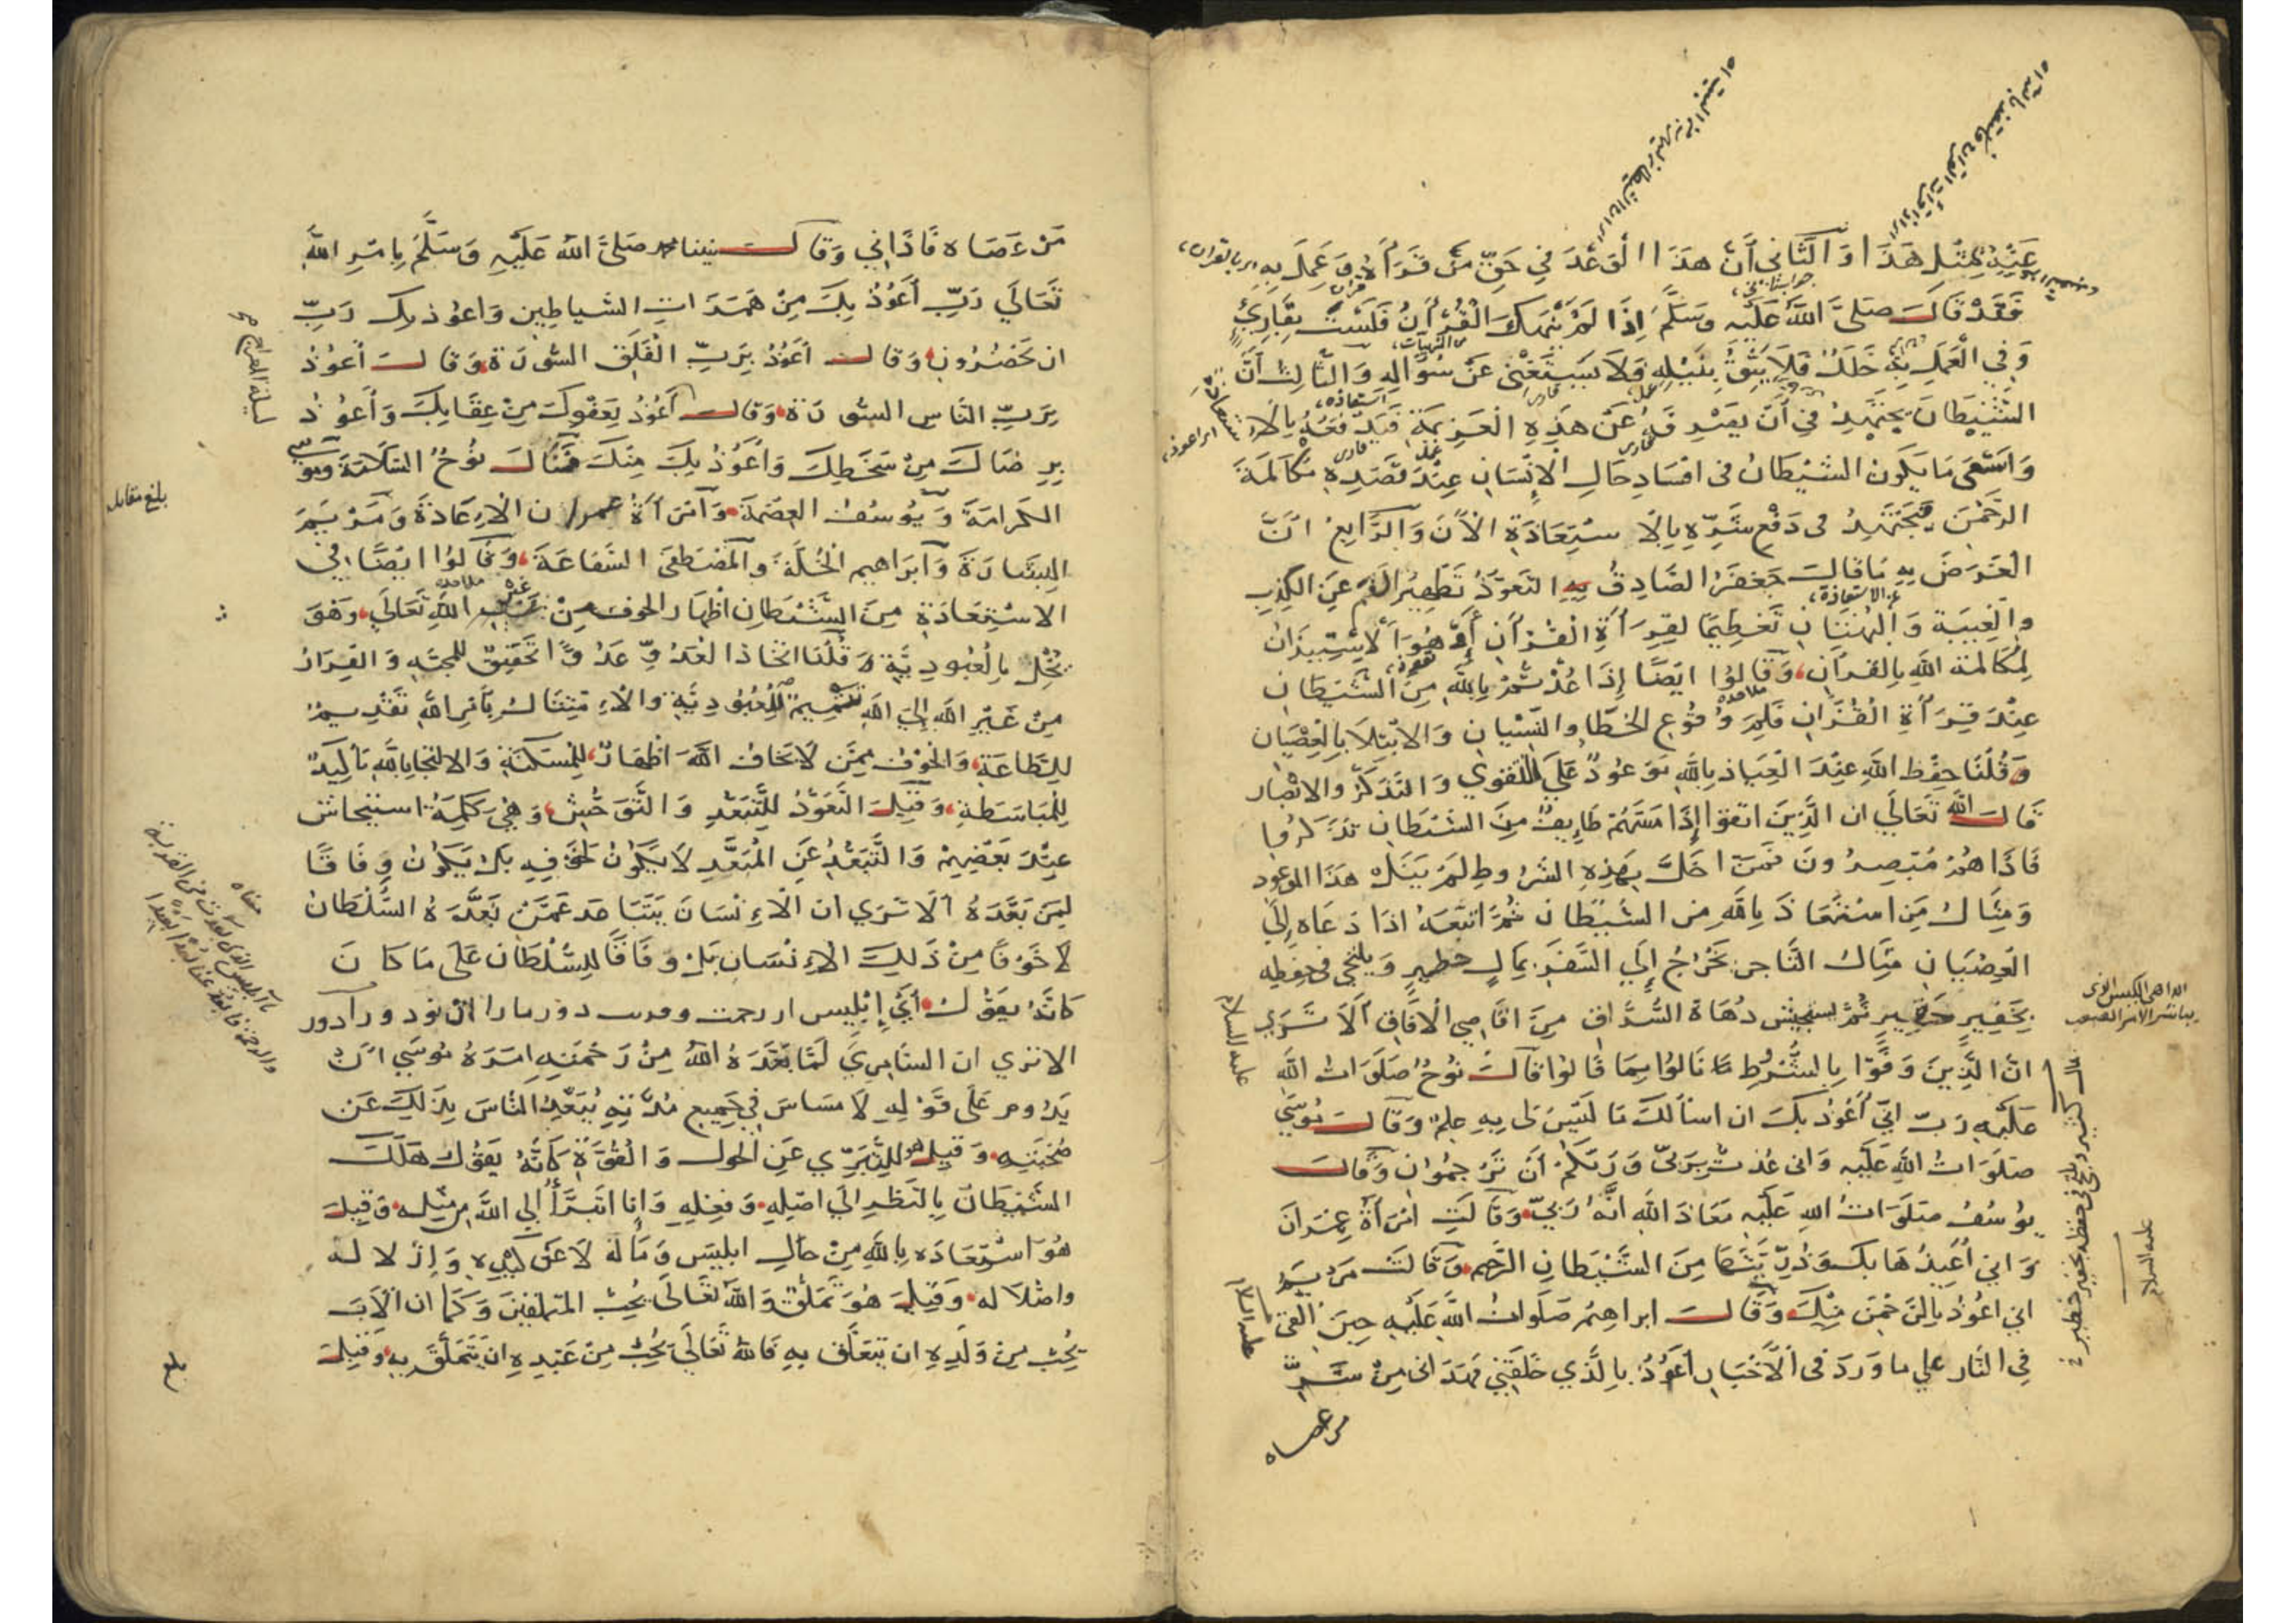 عِنْدَ مِثْلِ هَذَا وَالثَّانِي أَنَّ هَذَا الْوَعْدَ فِي حَقِّ مَنْ قَرَأَ وَعَمِلَ بِهِ
فَقَدْ قَالَ صَلَّى اللَّهُ عَلَيْهِ وَسَلَّمَ إِذَا لَمْ يَنْهَكَ الْقُرْآنُ فَلَسْتَ بِقَارِئٍ
وَفِي الْعَمَلِ بِهِ خَطَلٌ فَلَا يَثِقُ بِنَيْلِهِ وَلَا يَسْتَغْنِي عَنْ سُؤَالِهِ وَالثَّالِثُ أَنَّ
الشَّيْطَانَ يَجْتَهِدُ فِي أَنْ يَصْرِفَهُ عَنْ هَذِهِ الْعَزِيمَةِ فَيَدْفَعُهُ بِالِاسْتِعَاذَةِ
وَاَسْعَى مَا يَكُونُ الشَّيْطَانُ فى افسَادِ حَالِ الْإِنْسَانِ عِنْدَ قَصْدِهِ مُكَالَمَةَ
الرَّحْمَنِ فَيَجْتَهِدُ فى دَفْعِ شَرِّهِ بِالِاسْتِعَاذَةِ الْآنَ وَالرَّابِعُ أَنَّ
الْغَرَضَ بِهِ مَا قَالَ جَعْفَرُ الصَّادِقُ بِهِ التَعَوُّذُ تَطْهِيرُ الْفَمِ عَنِ الْكَذِبِ
وَالْغِيبَةِ وَالْبُهْتَانِ تَعْظِيمًا لِقِرَاءَةِ الْقُرْآنِ أَوْ هُوَ الِاسْتِيذَانُ
لِمُكَالَمَةِ اللَّهِ بِالْقُرآنِ وَقَالُوا ايضًا إِذَا عُذْتُمْ بِاللَّهِ مِنَ الشَّيْطَانِ
عِنْدَ قِرَاءَةِ الْقُرْآنِ فَلِمَ وُقُوعِ الْخَطَا وَالنِّسْيَانِ وَالابْتِلَا بِالْعِصْيَانِ
وَقُلْنَا حِفْظِ اللَّهِ عِنْدَ الْعِيَاذِ بِاللَّهِ مَوْعُودٌ عَلَى التَّقْوَى وَالتَّذَكُّرِ وَالابْصَارِ
قَالَ اللَّهُ تَعَالَى ان الَّذِينَ اتقوا إِذَا مَسَّهُمْ طَايِفٌ مِنَ الشَّيْطَانِ تَذَكَّرُوا
فَاذَا هُمْ مُبْصِرُونَ فَمَنْ اخَلَّ بِهَذِهِ الشُّرُوطِ لَمْ يَنَلْ هَذَا الموعود
وَمِثَالُ مَنِ اسْتَعَاذَ بِاللَّهِ مِنَ الشَّيْطَانِ ثُمَّ اتَّبَعَهُ اذَا دَعَاهُ إِلَى
الْعِصْيَانِ مِثَالُ التَّاجِرِ يَخْرُجُ إِلَى السَّفَرِ بِمَالٍ خَطِيرٍ وَيَلْتَجِي فى حِفْظِهِ
بِخَفِيرٍ خَفِيرٍ ثُمَّ يَسْتَجِيشُ دُهَاةَ السُّرَّاقِ مِنْ اقَاصِي الْآفَاقِ أَلَا تَرَى
انَّ الَّذِينَ وَفَّوْا بِالشُّرُوطِ نَالُوا بِمَا قَالُوا قَالَ نُوحٌ صَلَوَاتُ اللَّهِ
عَلَيْهِ رَبِّ اِنِّي أَعُوذُ بِكَ ان اسألك مَا لَيْسَ لى بِهِ عِلْمٌ وَقَالَ مُوسَى
صَلَوَاتُ اللَّهِ عَلَيْهِ وَانى عُذْتُ بِرَبِّى وَرَبِّكُمْ أَنْ تَرْجُمُونِ وَقَالَ
يُوسُفُ صَلَوَاتُ اللهِ عَلَيْهِ مَعَاذَ اللَّهِ انَّهُ رَبِّي وَقَالَتِ امْرَأَةُ عِمْرَانَ
وَإِنِي أُعِيذُهَا بِكَ وَذُرِّيَّتَهَا مِنَ الشَّيْطَانِ الرَّجِيمِ وَقَالَتْ مَرْيَمُ
اني اعُوذُ بِالرَّحْمَنِ مِنْكَ وَقَالَ ابراهِيمُ صَلَوَاتُ اللَّهِ عَلَيْهِ حِينَ الْقِيَ
فِي النَّارِ عَلَى مَا وَرَدَ فى الْأَخْبَارِ أَعُوذُ بِالَّذِي خَلَقَنِي فَهَدَانِى مِنْ شَرِّ
من عصاه
علیه السلام
علیه السلام
علیه السلام
مَنْ عَصَاهُ فَاَذَانِي وَقَالَ نبينا محمد صَلَّى اللَّهُ عَلَيْهِ وَسَلَّمَ بِامْرِ اللَّهِ
تَعَالَى رَبِّ أَعُوذُ بِكَ مِنْ هَمَزَاتِ الشياطِينِ وَاعُوذ بِكَ رَبِّ
ان يَحْضُرُونِ وَقَالَ أَعُوذُ بِرَبِّ الْفَلَقِ السُّورَةَ وَقَالَ أَعُوذُ
بِرَبِّ النَّاسِ السُّورَةَ وَقَالَ أَعُوذُ بِعَفْوِكَ مِنْ عِقَابِكَ وَأَعُوذُ
بِرِضَاكَ مِنْ سَخَطِكَ وَأَعُوذُ بِكَ مِنْكَ فَنَالَ نُوحٌ السَّلَامَةَ وَمُوسَى
الكَرَامَةَ وَيُوسُفُ العِصْمَةَ وَامْرَأَةُ عمران الاِعَاذَةَ وَمَرْيَمُ
البِشَارَةَ وَاَبْرَاهِيمُ الْخُلَّةَ وَالْمُصْطَفَى الشَّفَاعَةَ وَقَالُوا ايْضًا فِي
الاسْتِعَاذَةِ مِنَ الشَّيْطَانِ اظْهَارُ الخوف مِنْ غَيْرِ اللَّهِ تَعَالَى وَهُوَ
يُخِلُّ بِالْعُبُودِيَّةِ وَقُلْنَا اتِّخَاذُ الْعَدُوِّ عَدُوًّا تَحْقِيقٌ لِلْمَحَبَّةِ وَالْفِرَارُ
مِنْ غَيْرِ اللَّهِ إِلَى اللَّهِ تَتْمِيمٌ لِلْعُبُودِيَّةِ وَالْاِمْتِثَالُ بِأَمْرِ اللَّهِ تَقْدِيمٌ
لِلطَّاعَةِ وَالْخَوْفُ مِمَّنْ لَا يَخَافُ اللَّهَ اظْهَارٌ لِلْمَسْكَنَةِ وَالالتِجَا بِاللَّهِ تَأْكِيدٌ
لِلْمُبَاسَطَةِ وَقِيلَ التَّعَوُّذُ لِلتَّبَعُّدِ وَالتَّوَحُّشِ وَهِيَ كَلِمَةُ اسْتِيحَاشٍ
عِنْدَ بَعْضِهِمْ وَالتَّبَعُّدُ عَنِ الْمُبَعَّدِ لَا يَكُونُ لِخَوْفٍ فِيهِ بَلْ يَكُونُ وِفَاقًا
لِمَنْ بَعَّدَهُ اَلَا تَرَى ان الْاِنْسَانَ يَتَبَاعَدُ عَمَّنْ بَعَّدَهُ السُّلْطَانُ
لَا خَوْفًا مِنْ ذَلِكَ الْاِنْسَانِ بَلْ وِفَاقًا لِلسُّلْطَانِ عَلَى مَا كَانَ
كَاَنَّهُ يَقُولُ أَيْ إِبْلِيس
الا ترى ان السَّامِرِيَ لَمَّا بَعَّدَهُ اللَّهُ مِنْ رَحْمَتِهِ اَمَرَهُ مُوسَى اَنْ
يَدُومَ عَلَى قَوْلِهِ لَا مِسَاسَ فِي جَمِيعِ مُدَّتِهِ يُبَعِّدُ النَّاسَ بِذَلِكَ عَنْ
صُحْبَتِهِ وَقِيلَ هُوَ لِلتَّبَرِّي عَنِ الْحَوْلِ وَالْقُوَّةِ كَاَنَّهُ يَقُولُ هَلَكَ
الشَّيْطَانُ بِالنَّظَرِ الَى اصْلِهِ وَفِعْلِهِ وَانا اتَبَرَّأُ الى اللَّهِ مِنْ مِثْلِهِ وَقِيلَ
هُوَ اسْتِعَاذَه بِاللَّهِ مِنْ حَالِ ابليسَ وَمَالَهُ لَا عَنْ كَيْدِهِ وَاِذْلَالِه
واضْلَالِه وَقِيلَ هُوَ تَمَلُّقٌ وَاللَّهُ تَعَالَى يُحِبُّ المتملقينَ وَكَمَا ان الْاَبَ
يُحِبُّ مِنْ وَلَدِهِ ان يَتَعَلَّقَ بِهِ فَاللَّهُ تَعَالَى يُحِبُّ مِنْ عَبْدِهِ ان يَتَمَلَّقَ بِهِ وَقِيلَ
بلغ مقابله